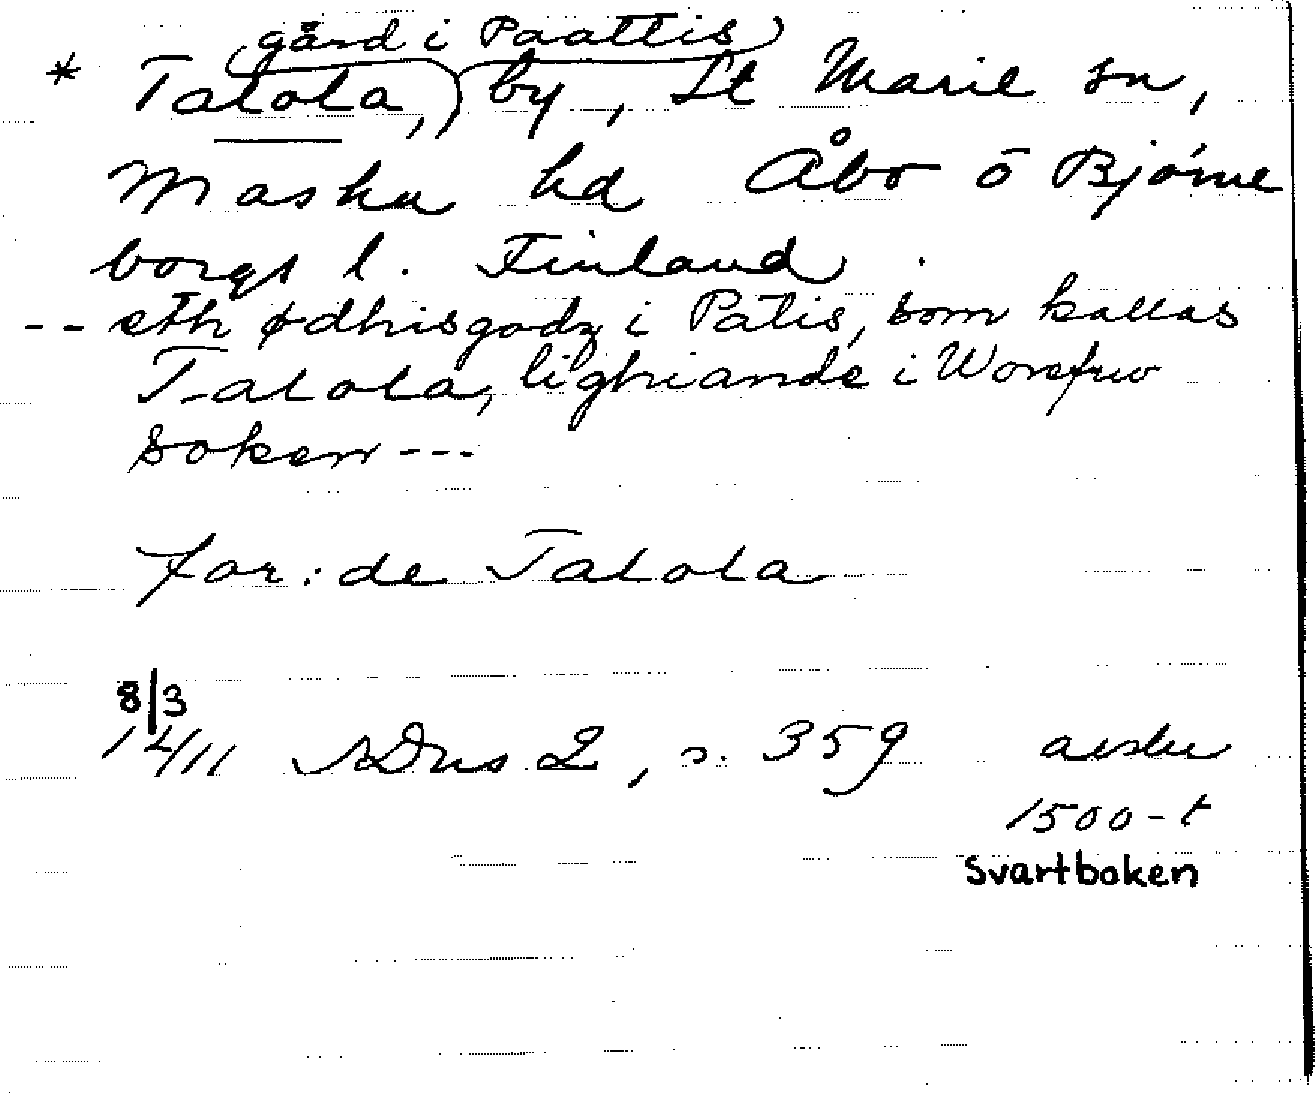 (gård i Paattis)
* Tatola,) by, St Marie sn,
Masku hd Åbo o Björne
borgs l. Finland.
-- eth ødhisgodz i Patis, som kallas
Tatola, lighiande i Worefrw
soken ---
for: de Tatola
8/3
1411 SDns 2, s. 359 avskr
1500-t
Svartboken